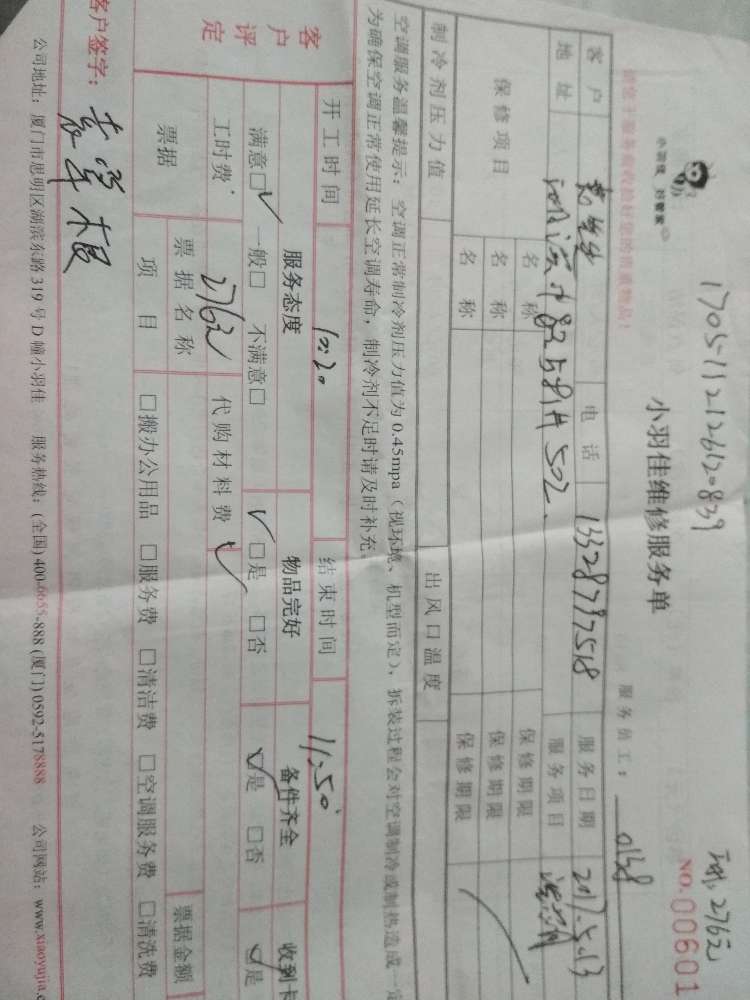 1705112126120839
小羽佳 好管家
小羽佳维修服务单
NO.00601
服务员工： 0138
客户 电话 13328797518 服务日期 2017.5.13
地址 502 服务项目
保修项目 名称 保修期限
名称 保修期限
名称 保修期限
制冷剂压力值 出风口温度
空调服务温馨提示：空调正常制冷剂压力值为0.45mpa（视环境、机型而定），拆装过程会对空调制冷或制热造成一定
为确保空调正常使用延长空调寿命，制冷剂不足时请及时补充。
开工时间 10:20 结束时间 11:50
客户评定 服务态度 物品完好 备件齐全 收到卡
满意□ 一般□ 不满意□ □是 □否 □是 □否 □是
工时费 276元 代购材料费
票据 票据名称 票据金额
项目 □搬办公用品 □服务费 □清洁费 □空调服务费 □清洗费
客户签字：
公司地址：厦门市思明区湖滨东路319号D幢小羽佳 服务热线：(全国) 400-6655-888 (厦门) 0592-5178888 公司网站：www.xiaoyujia.c